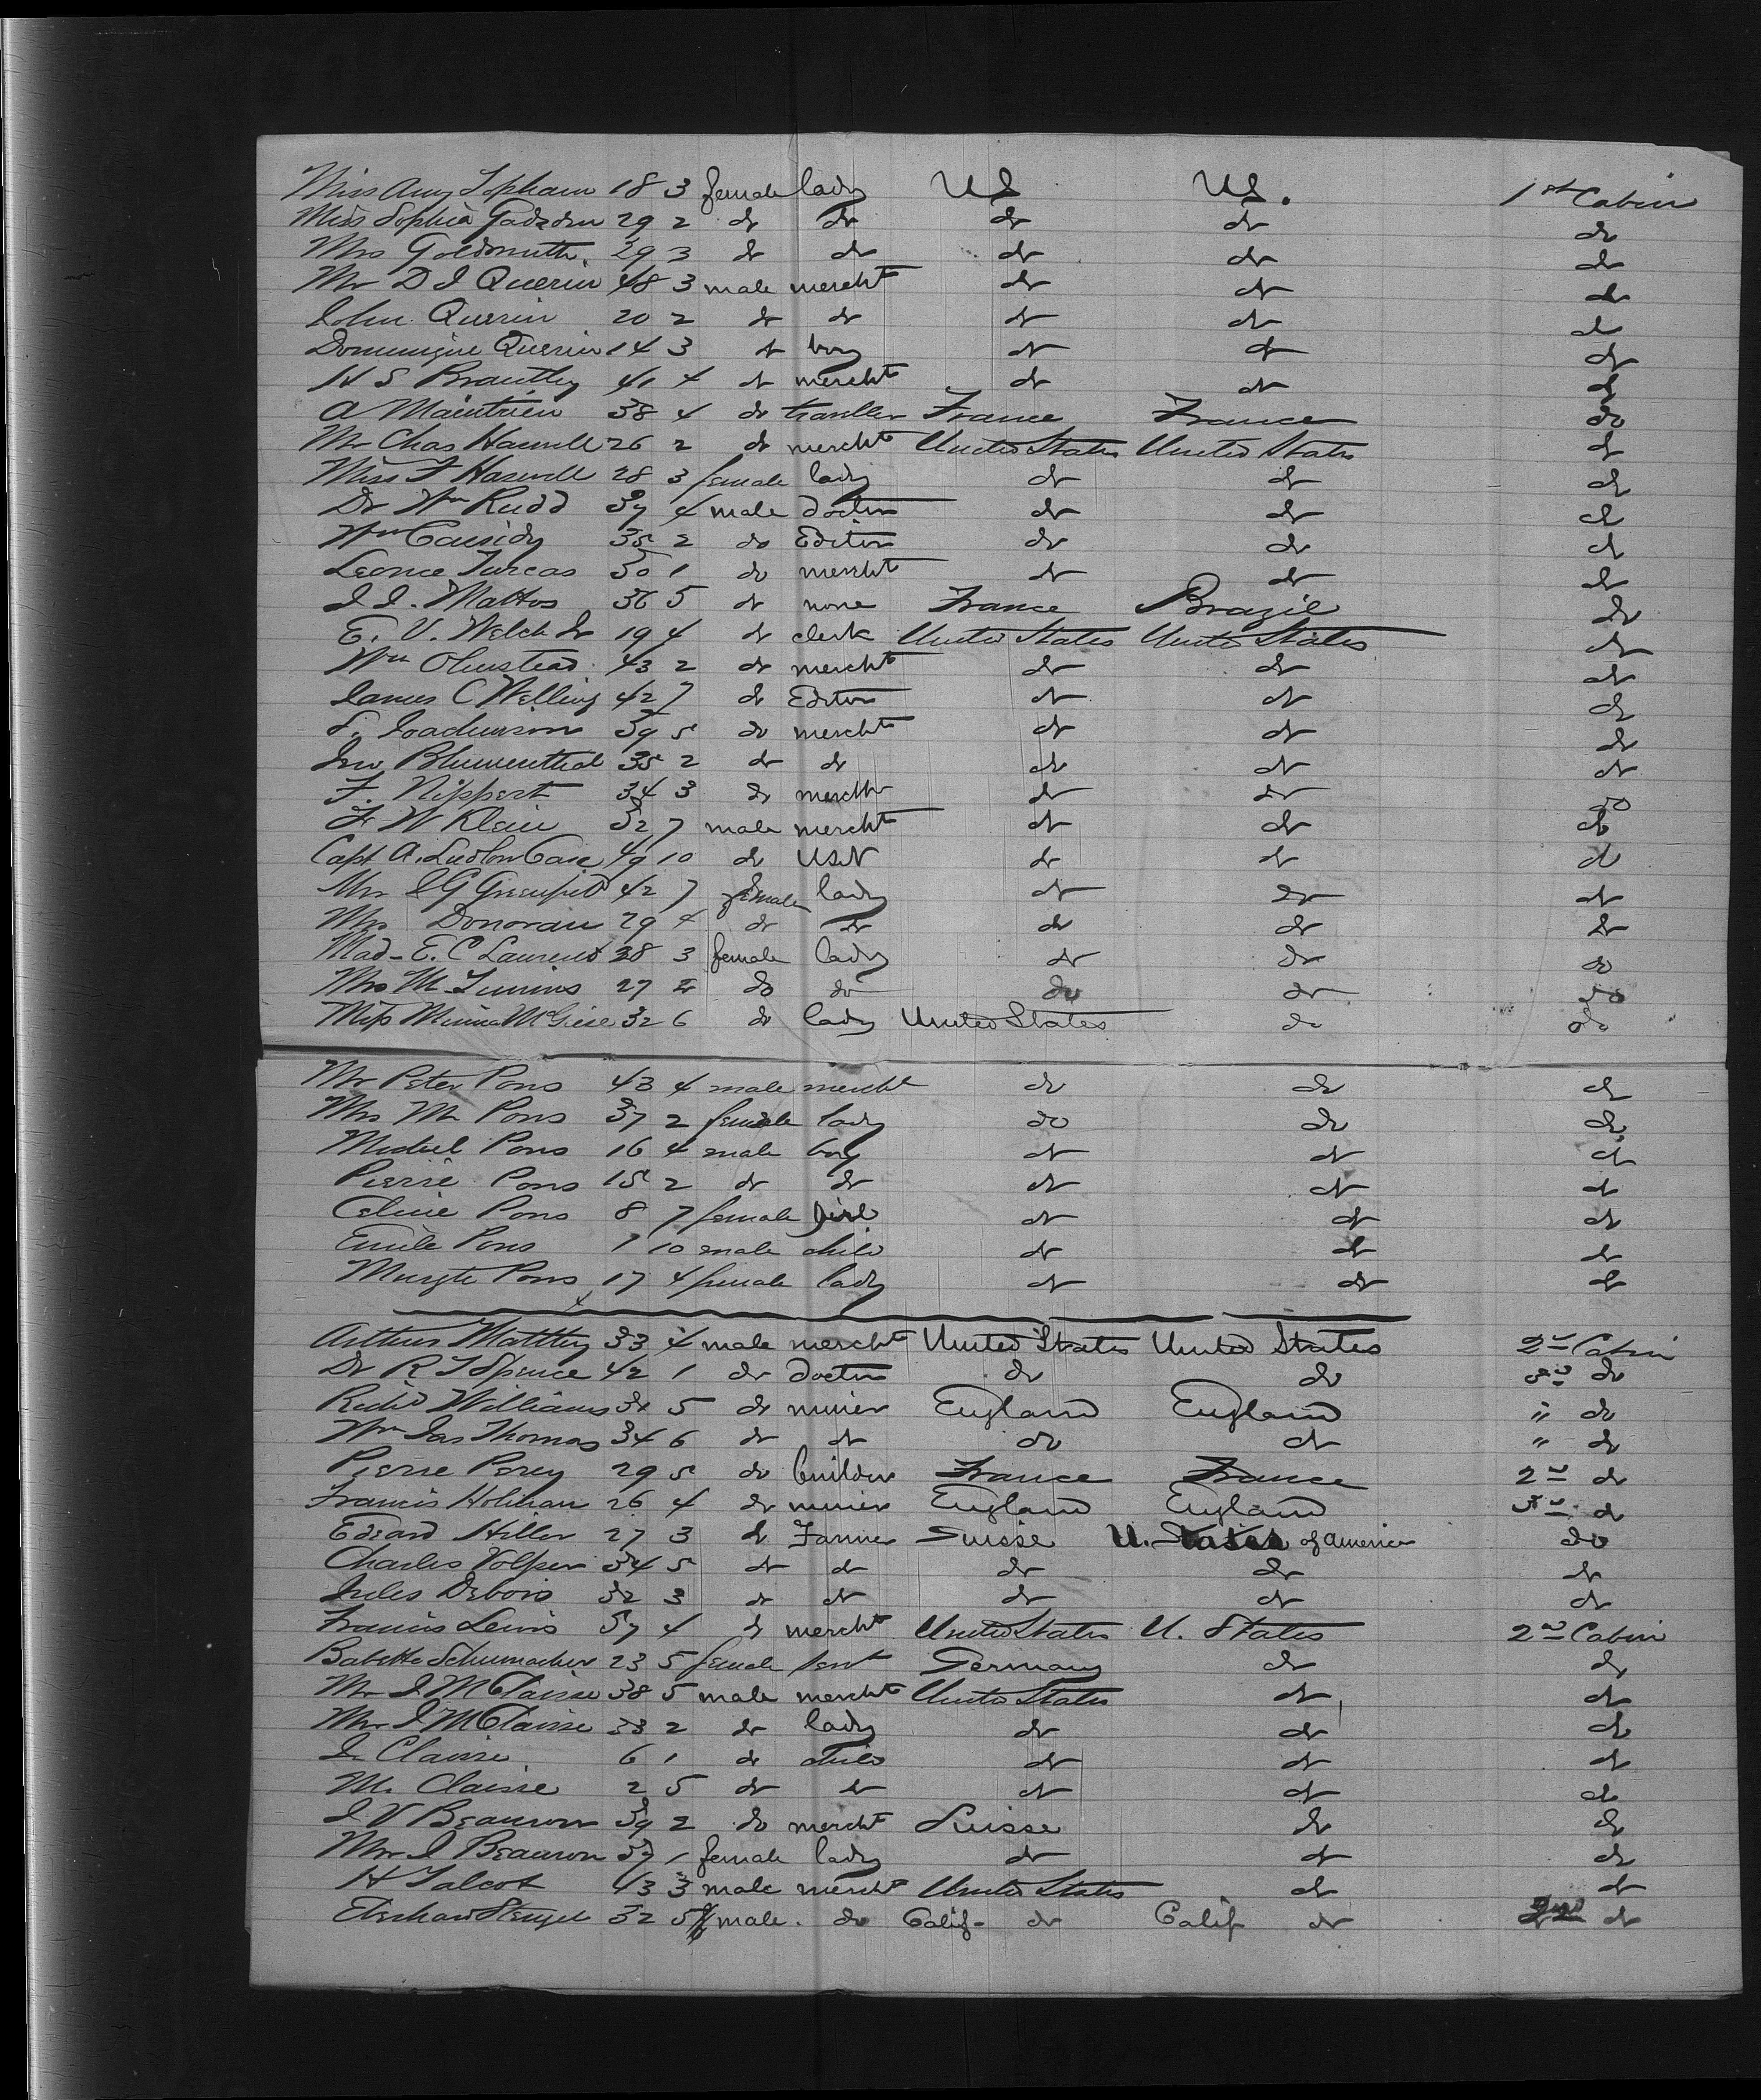 Miss Amy Topham 18 3 female lady US US. 1st Cabin
Miss Sophia Gadsden 29 2 do do do do do
Mrs Goldsmith. 29 3 do do do do do
Mr D J Querin 48 3 male mercht do do do
John Querin 20 2 do do do do do
Dominique Querin 14 3 do boy do do do
H S Brantley 41 4 do mercht do do do
A 38 4 do traveller France France do
Mr Chas 26 2 do mercht United States United States do
Miss 28 3 female lady do do do
Dr Wm Rudd 39 4 male doctor do do do
Wm Cassidy 35 2 do Editor do do do
Leonce Turcas 30 1 do mercht do do do
J J. Mattos 36 5 do none France Brazil do
E. V. Welch Jr 19 4 do clerk United States United States do
Wm Olmstead 43 2 do mercht do do do
James C Welling 42 7 do Editor do do do
S. Joachimson 39 5 do mercht do do do
Blumenthal 35 2 do do do do do
F. Nippert 34 3 do mercht do do do
F W Klein 52 7 male mercht do do do
Capt A. Ludlow Case 49 10 do USN do do do
J G Greenfield 42 7 female lady do do do
Mrs Donovan 29 4 do do do do do
Mad- E. C Laurent 28 3 female lady do do do
Mrs M 27 2 do do do do do
Miss Minnie 32 6 do lady United States do do
Mr Peter Pons 43 4 male mercht do do do
Mrs M Pons 37 2 female lady do do do
Michel Pons 16 4 male boy do do do
Pierre Pons 15 2 do do do do do
Celine Pons 8 7 female girl do do do
Emile Pons 1 10 male child do do do
Pons 17 4 female lady do do do
Arthur Matthey 33 4 male mercht United States United States 2d Cabin
Dr R J Spence 42 1 do doctor do do do
Richd Williams 31 5 do miner England England " do
Wm Jas Thomas 34 6 do do do do " do
Pierre Perey 29 5 do builder France France 2d do
Francis Holman 26 4 do miner England England do
Edward Hiller 27 3 do Farmer Suisse U. States of America do
Charles Volper 34 5 do do do do do
Jules Debois 32 3 do do do do do
Francis Lewis 57 4 do mercht United States U. States 2nd Cabin
Babette Schumacher 23 5 female Germany do do
Mr J M Claisse 38 5 male mercht United States do do
J M Claisse 33 2 do lady do do do
J. Claisse 6 1 do child do do do
M. Claisse 2 5 do do do do do
J V Beauron 39 2 do mercht Suisse do do
J Beauron 37 1 female lady do do do
H Talcot 43 3 male mercht United States do do
32 5 male. do Calif- do Calif do 2nd do